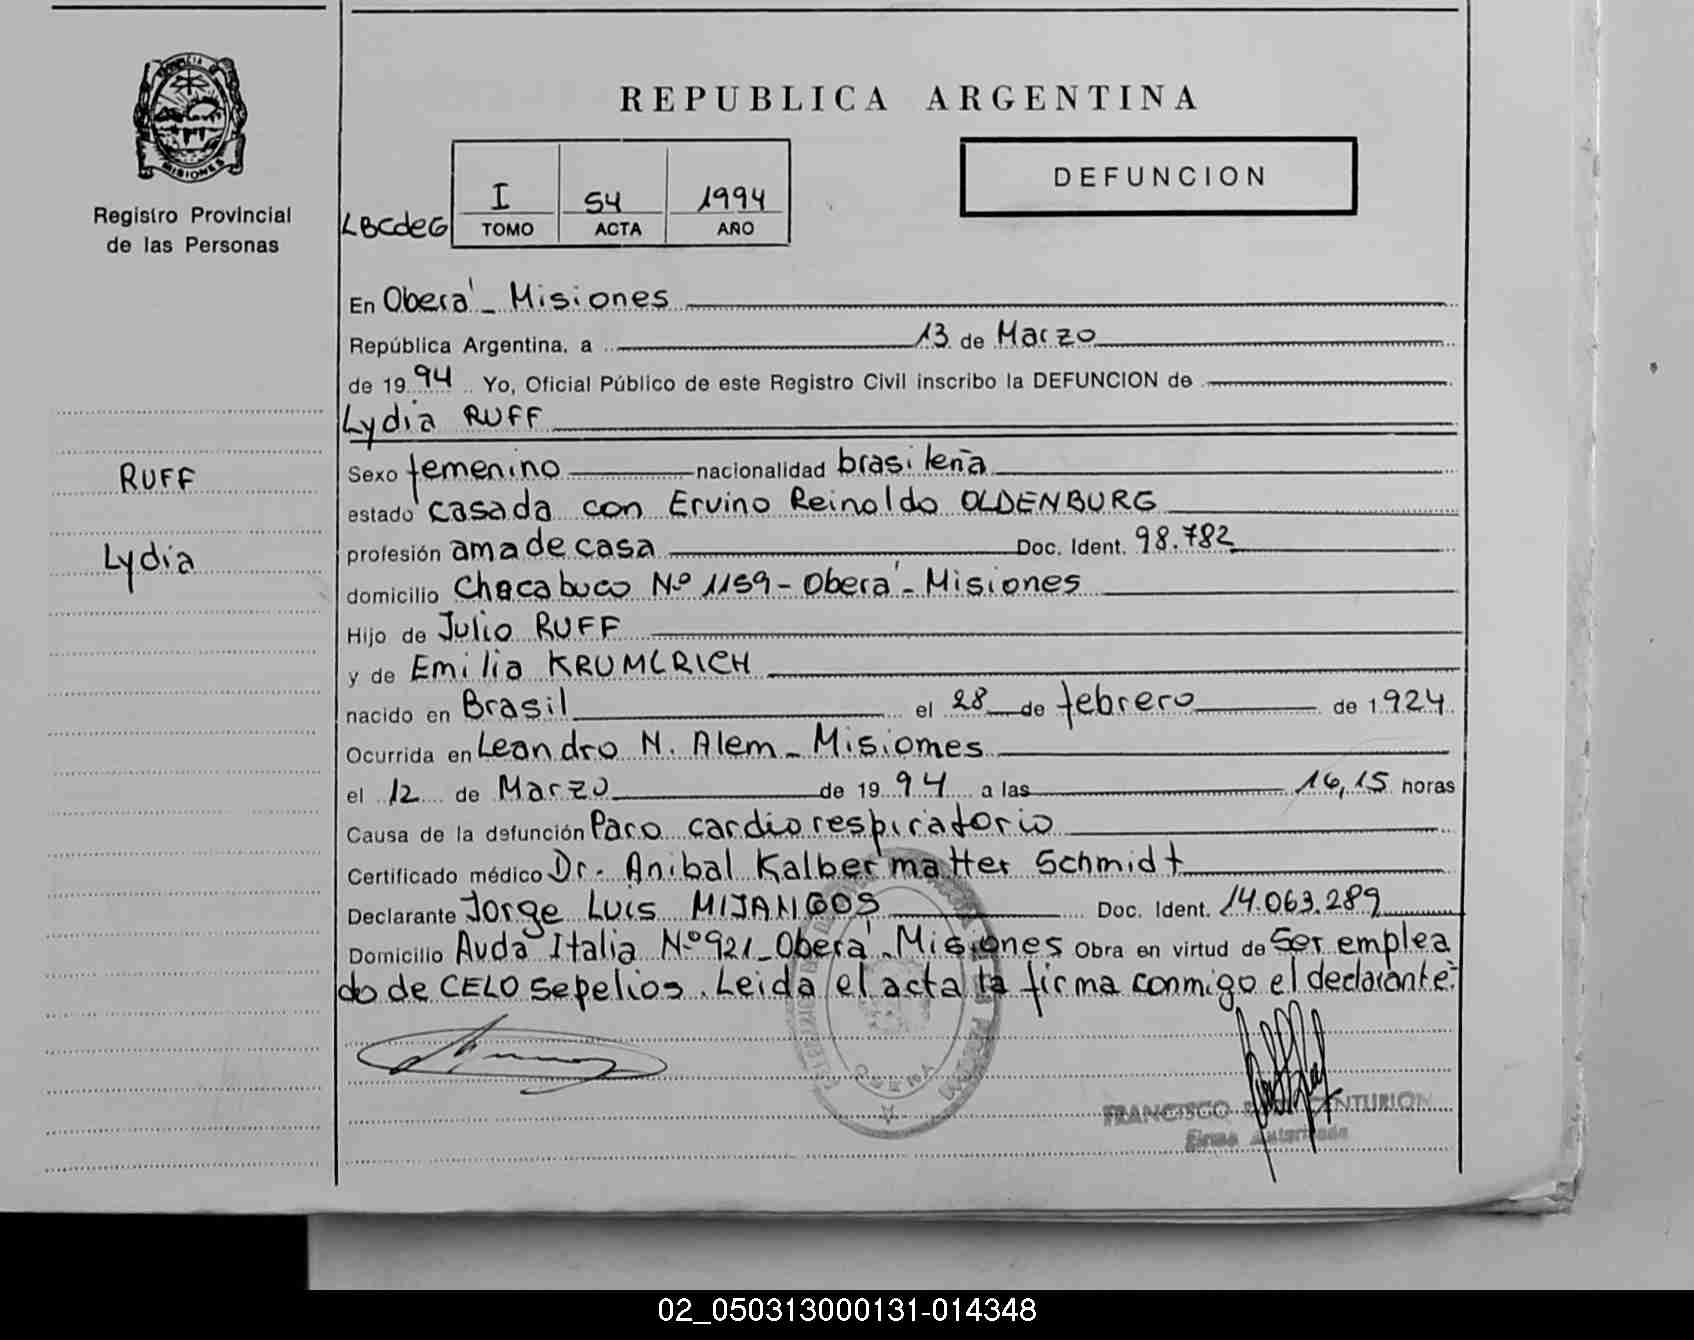 REPUBLICA ARGENTINA
MISIONES
Registro Provincial
de las Personas
LBCdeG
I 54 1994
TOMO ACTA AÑO
DEFUNCION
En Oberá - Misiones
República Argentina, a 13 de Marzo
de 1994 Yo, Oficial Público de este Registro Civil inscribo la DEFUNCION de
Lydia RUFF
RUFF
Lydia
Sexo femenino nacionalidad brasileña
estado casada con Ervino Reinoldo OLDENBURG
profesión ama de casa Doc. Ident. 98.782
domicilio Chacabuco Nº 1159 - Oberá - Misiones
Hijo de Julio RUFF
y de Emilia KRUMLRICH
nacido en Brasil el 28 de febrero de 1924
Ocurrida en Leandro N. Alem - Misiomes
el 12 de Marzo de 1994 a las 16,15 horas
Causa de la defunción Paro cardiorespiratorio
Certificado médico Dr. Anibal Kalbermatter Schmidt
Declarante Jorge Luis MIJANGOS Doc. Ident. 14.063.289
Domicilio Avda Italia Nº 921 - Oberá - Misiones Obra en virtud de Ser emplea
do de CELO sepelios. Leida el acta la firma conmigo el declarante.-
FRANCISCO CENTURION
Firma Autorizada
02_050313000131-014348